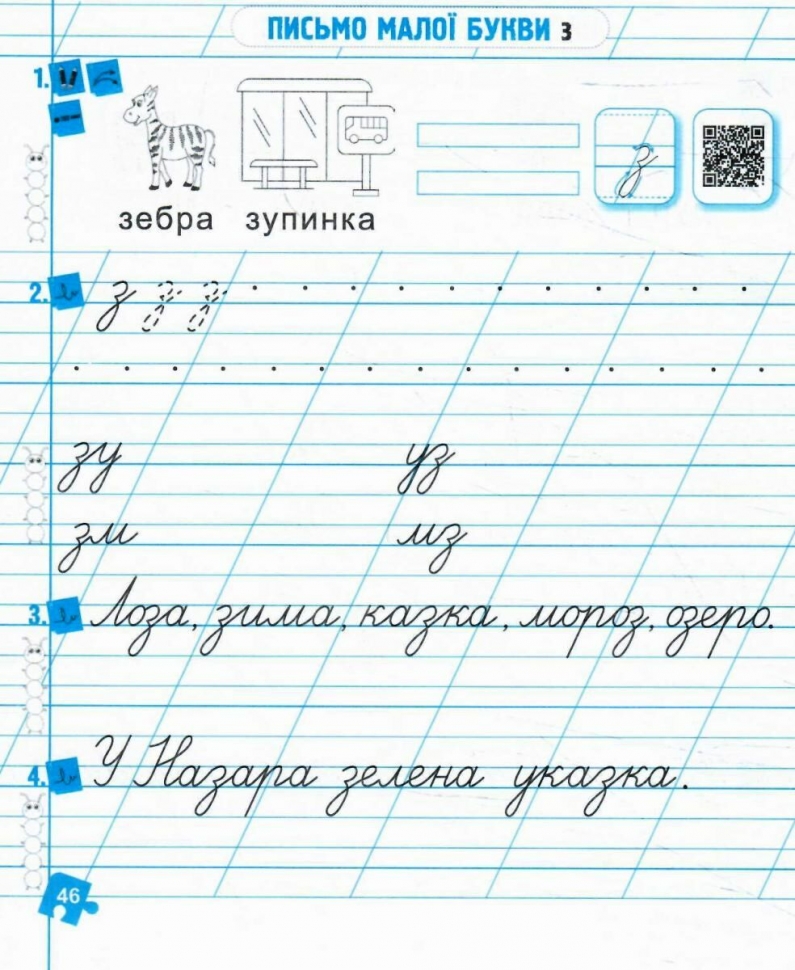 ПИСЬМО МАЛОЇ БУКВИ з
1.
з
зебра зупинка
2. з з з
зу уз
зм мз
3. Лоза, зима, казка, мороз, озеро.
4. У Назара зелена указка.
46